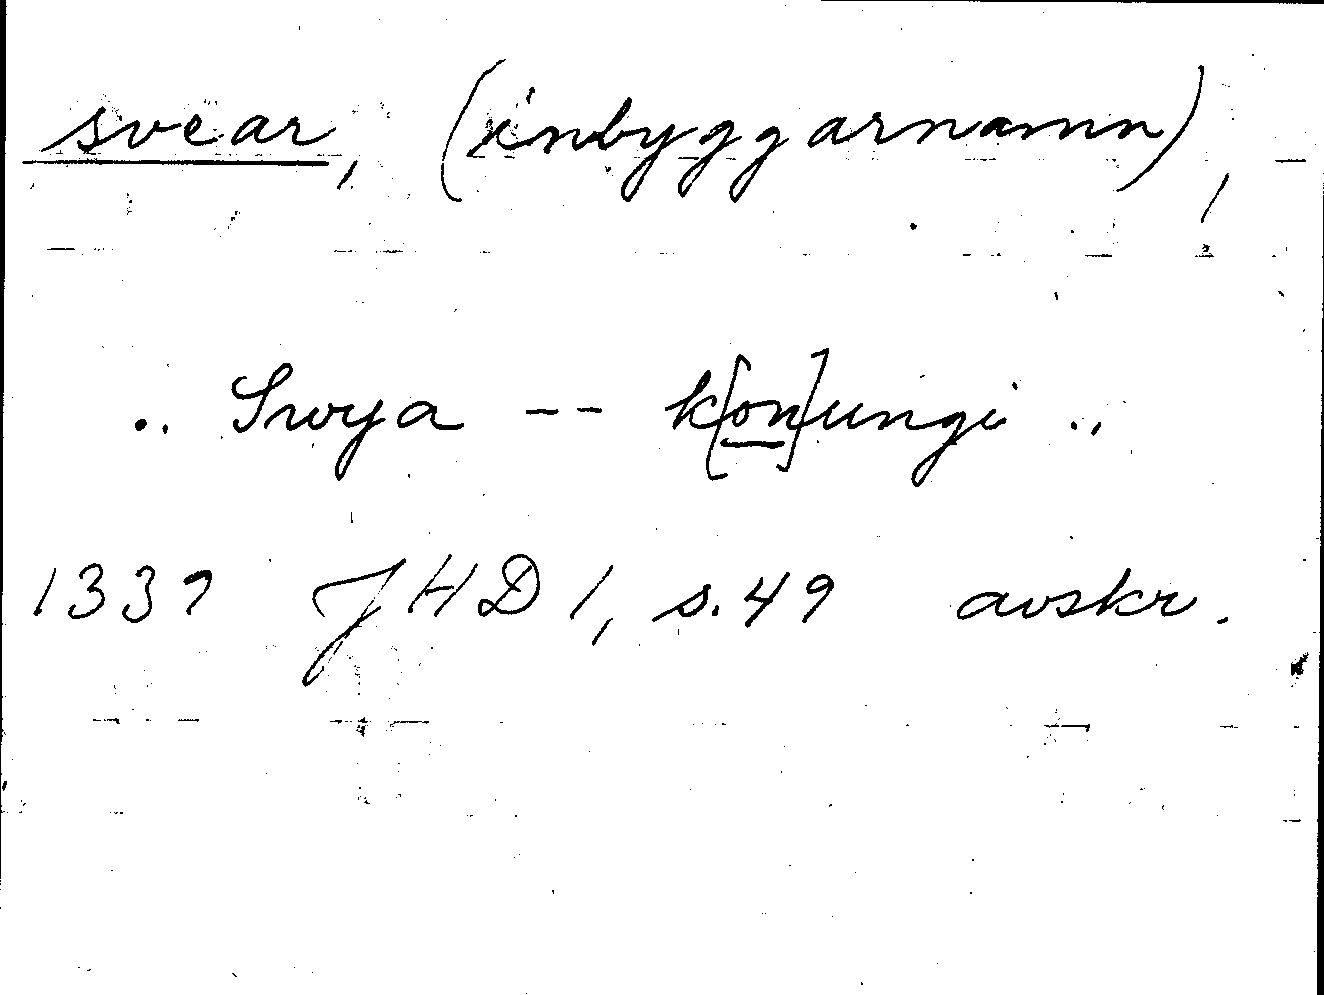 svear, (inbyggarnamn),
.. Swya -- k[on]ungi ..
1339 JHD 1, s. 49 avskr.